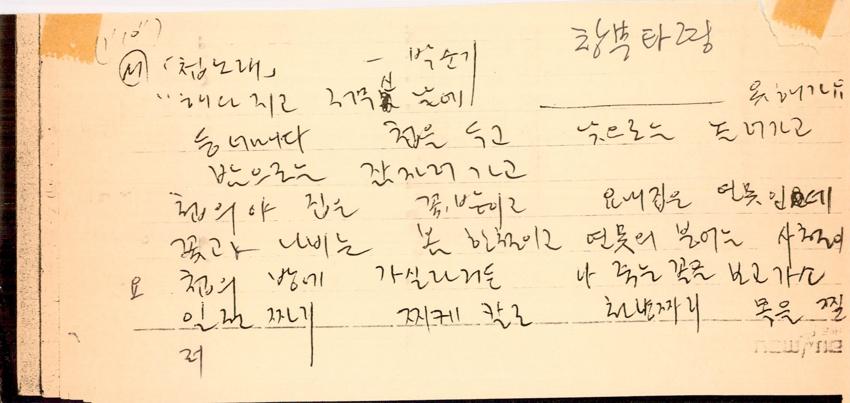 창부타령
(1/10")
서 「첩노래」 - 박순기
"해다지고 저믄 날에 옷해가
등너머다 첩을 두고 낮으로는 놀너가고
밤으로는 잠자러 가고
첩의야 집은 꽃밭이고 요내집은 연못인데
꽃과 나비는 봄 한철이고 연못의 붕어는 사철이
요 첩의 방에 가실라거든 나 죽는 꼴을 보고가소
일전 짜리 찌케 칼로 천냥짜리 목을 찔
러